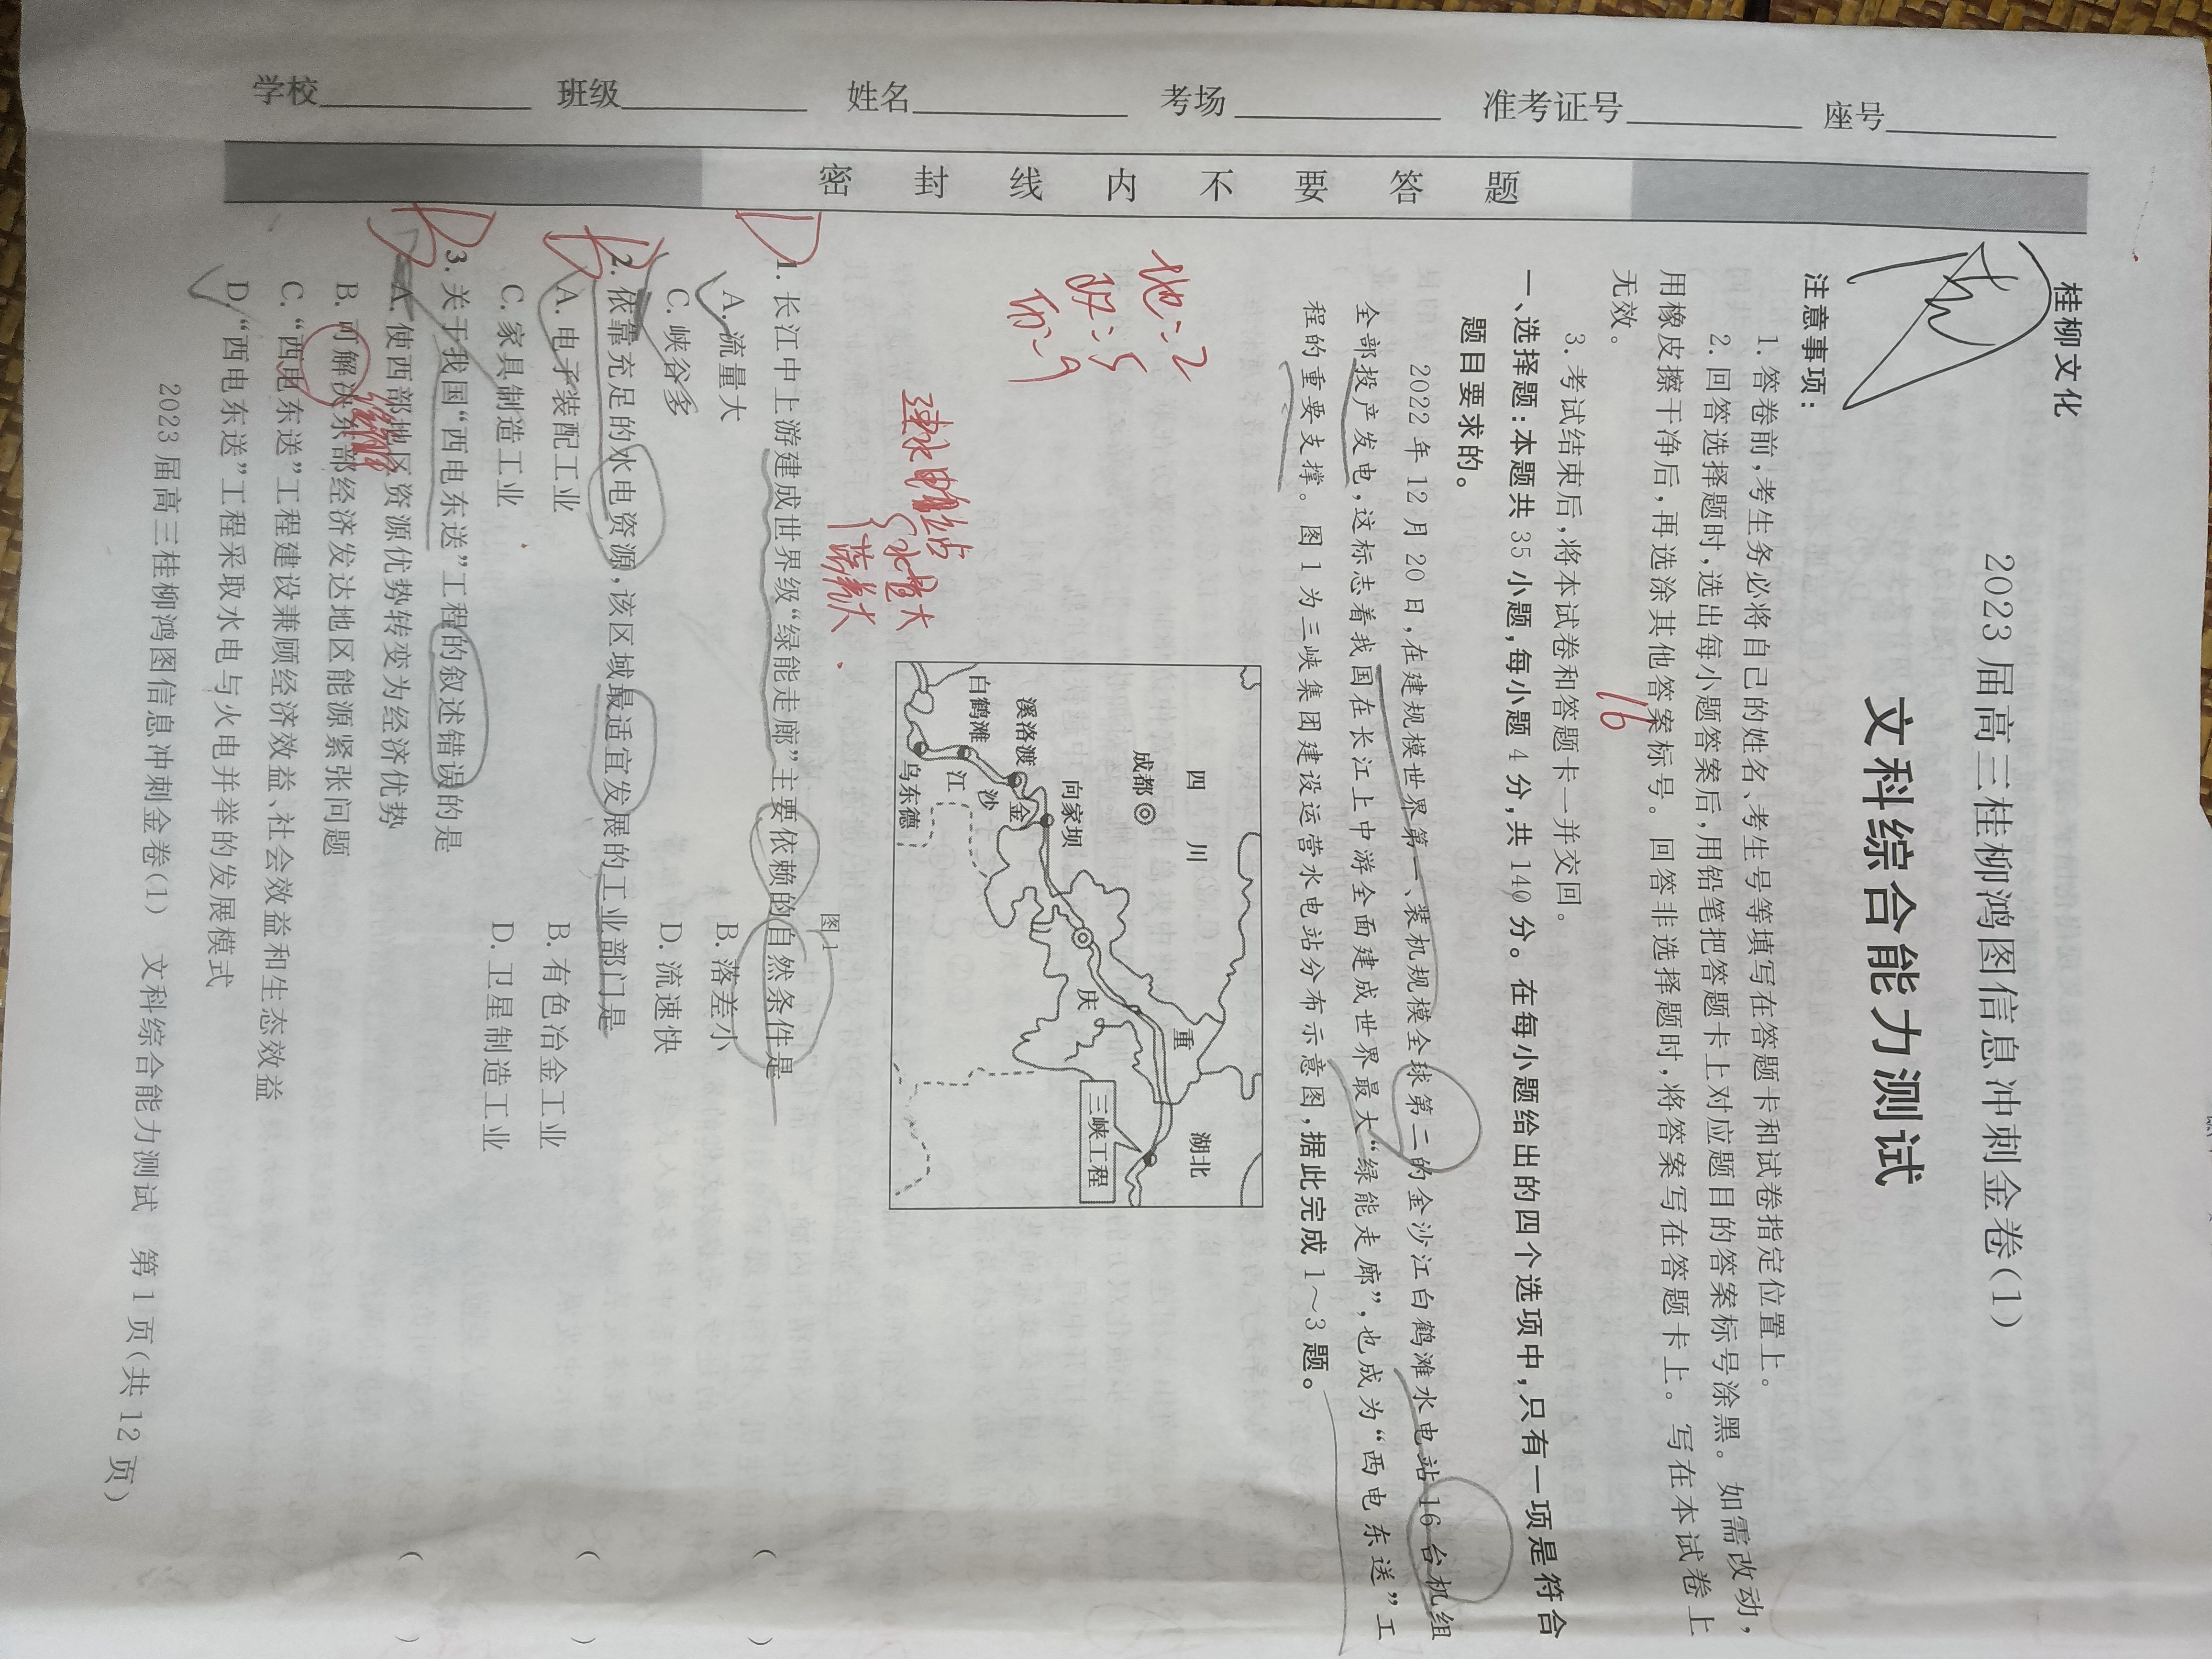 学校 班级 姓名 考场 准考证号 座号
密封线内不要答题
桂柳文化
2023届高三桂柳鸿图信息冲刺金卷(1)
文科综合能力测试
注意事项:
1. 答卷前,考生务必将自己的姓名、考生号等填写在答题卡和试卷指定位置上。
2. 回答选择题时,选出每小题答案后,用铅笔把答题卡上对应题目的答案标号涂黑。如需改动,
用橡皮擦干净后,再选涂其他答案标号。回答非选择题时,将答案写在答题卡上。写在本试卷上
无效。
16
3. 考试结束后,将本试卷和答题卡一并交回。
一、选择题:本题共35小题,每小题4分,共140分。在每小题给出的四个选项中,只有一项是符合
题目要求的。
2022年12月20日,在建规模世界第一、装机规模全球第二的金沙江白鹤滩水电站16台机组
全部投产发电,这标志着我国在长江上中游全面建成世界最大“绿能走廊”,也成为“西电东送”工
程的重要支撑。图1为三峡集团建设运营水电站分布示意图,据此完成1~3题。
地:2
政:5
四 川
湖北
成都
重
庆
向家坝
三峡工程
溪洛渡
金
沙
江
白鹤滩
乌东德
建水电站
水量大
落差大
图1
1. 长江中上游建成世界级“绿能走廊”主要依赖的自然条件是 ( )
A. 流量大 B. 落差小
C. 峡谷多 D. 流速快
2. 依靠充足的水电资源,该区域最适宜发展的工业部门是 ( )
A. 电子装配工业 B. 有色冶金工业
C. 家具制造工业 D. 卫星制造工业
3. 关于我国“西电东送”工程的叙述错误的是 ( )
A. 使西部地区资源优势转变为经济优势
B. 可解决东部经济发达地区能源紧张问题
C. “西电东送”工程建设兼顾经济效益、社会效益和生态效益
D. “西电东送”工程采取水电与火电并举的发展模式
2023届高三桂柳鸿图信息冲刺金卷(1) 文科综合能力测试 第1页(共12页)